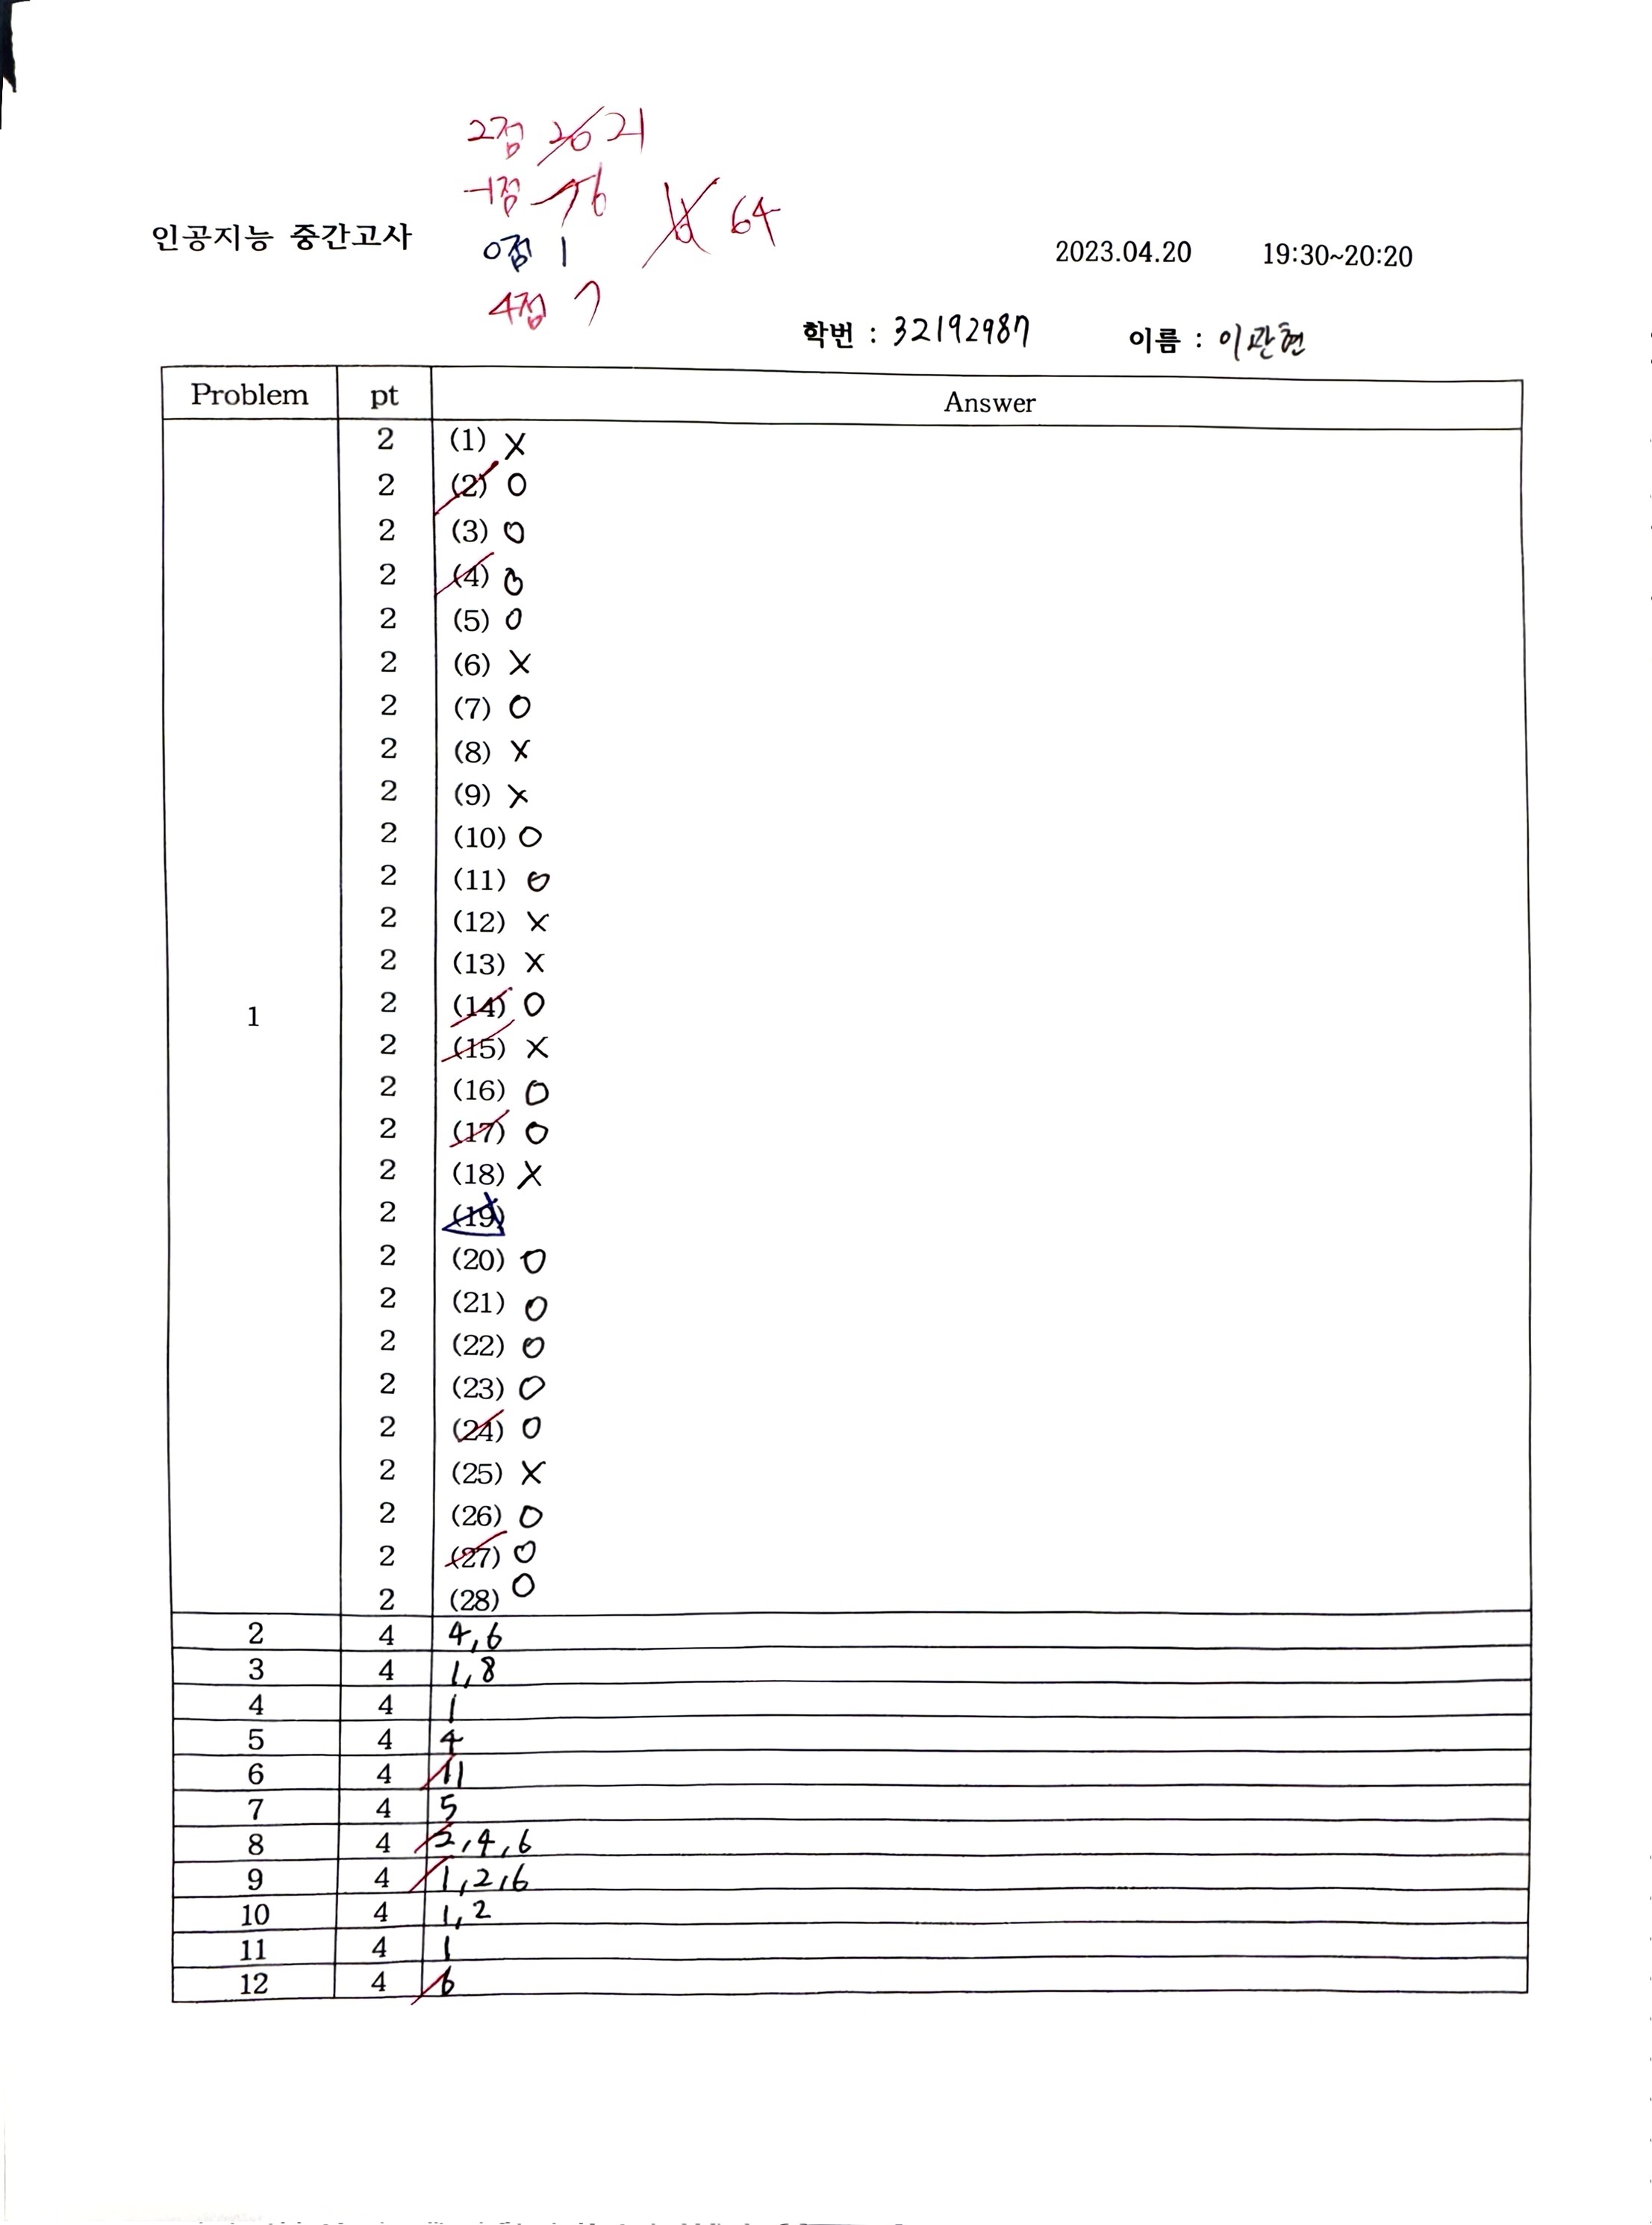 2점 20 21
-1점 7 6
64
인공지능 중간고사
0점 1
2023.04.20 19:30~20:20
4점 7
학번 : 32192987 이름 : 이관현
Problem pt Answer
2 (1) X
2 (2) O
2 (3) O
2 (4) O
2 (5) O
2 (6) X
2 (7) O
2 (8) X
2 (9) X
2 (10) O
2 (11) O
2 (12) X
2 (13) X
1 2 (14) O
2 (15) X
2 (16) O
2 (17) O
2 (18) X
2 (19)
2 (20) O
2 (21) O
2 (22) O
2 (23) O
2 (24) O
2 (25) X
2 (26) O
2 (27) O
2 (28) O
2 4 4,6
3 4 1,8
4 4 1
5 4 4
6 4 11
7 4 5
8 4 2,4,6
9 4 1,2,6
10 4 1,2
11 4 1
12 4 6